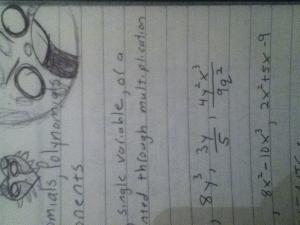 omials, Polynomials
onents
, single variable, or a
nted through multiplication
, 8y³, 3y/5, 4y²x³/9q²
, 8x²-10x³, 2x²+5x-9